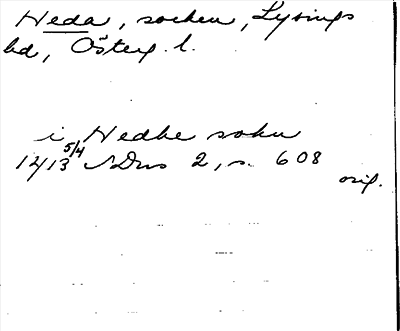 Heda, socken, Lysings
hd, Österg. l.
i Hedhe sokn
1413 5/4 SDns 2, s. 608
orig.